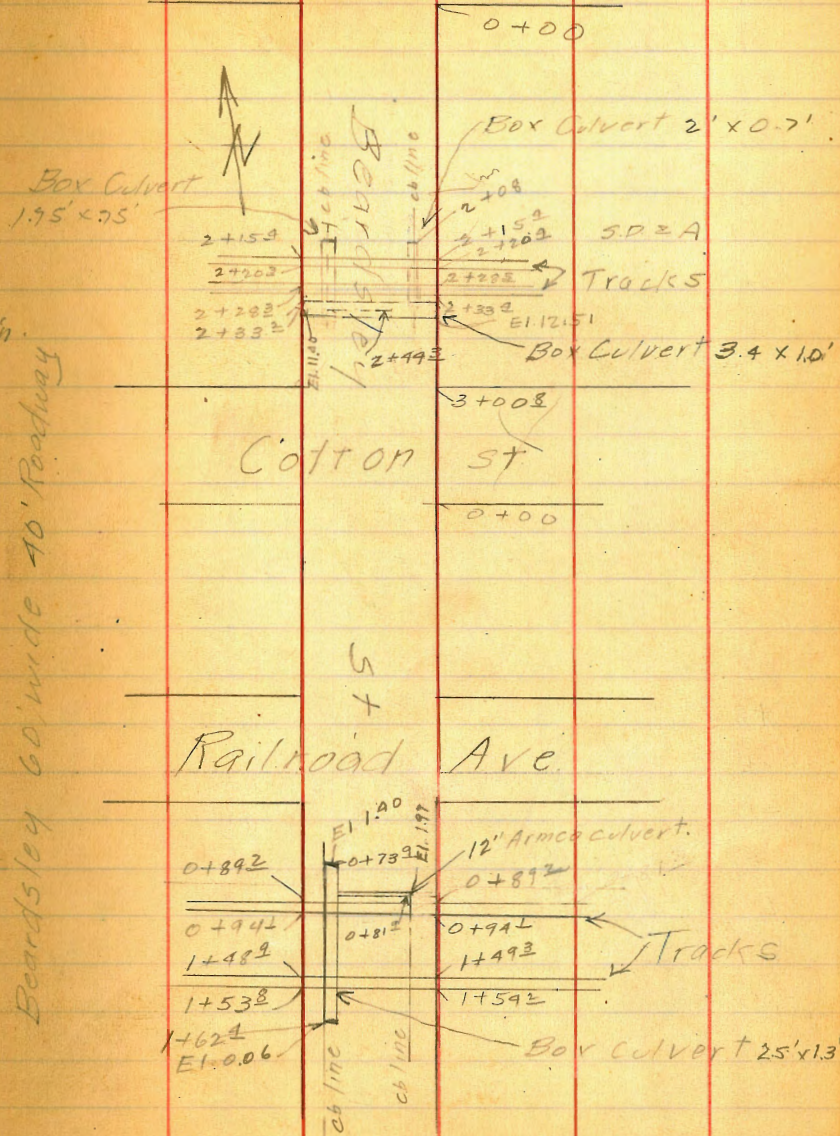 0+00
N
Box Culvert 2' x 0.7'
Box Culvert
1.75' x .75'
cb line
Beardsley
cb line
2+08
2+15⁴
2+15⁴
2+20⁴
S.D. & A
2+20³
2+28⁵
Tracks
2+28³
2+33²
2+33⁴
El. 12.51
El. 11.40
2+44³
Box Culvert 3.4 x 1.0'
3+00⁸
Cotton St
0+00
Beardsley 60' wide 40' Roadway
St
Railroad Ave.
El 1.40
0+73⁹
El. 1.97
12" Armco culvert.
0+89²
0+89²
0+94¹
0+81²
0+94¹
Tracks
1+48⁹
1+49³
1+53⁸
1+54²
1+62⁴
El. 0.06
Box Culvert 2.5' x 1.3
cb line
cb line